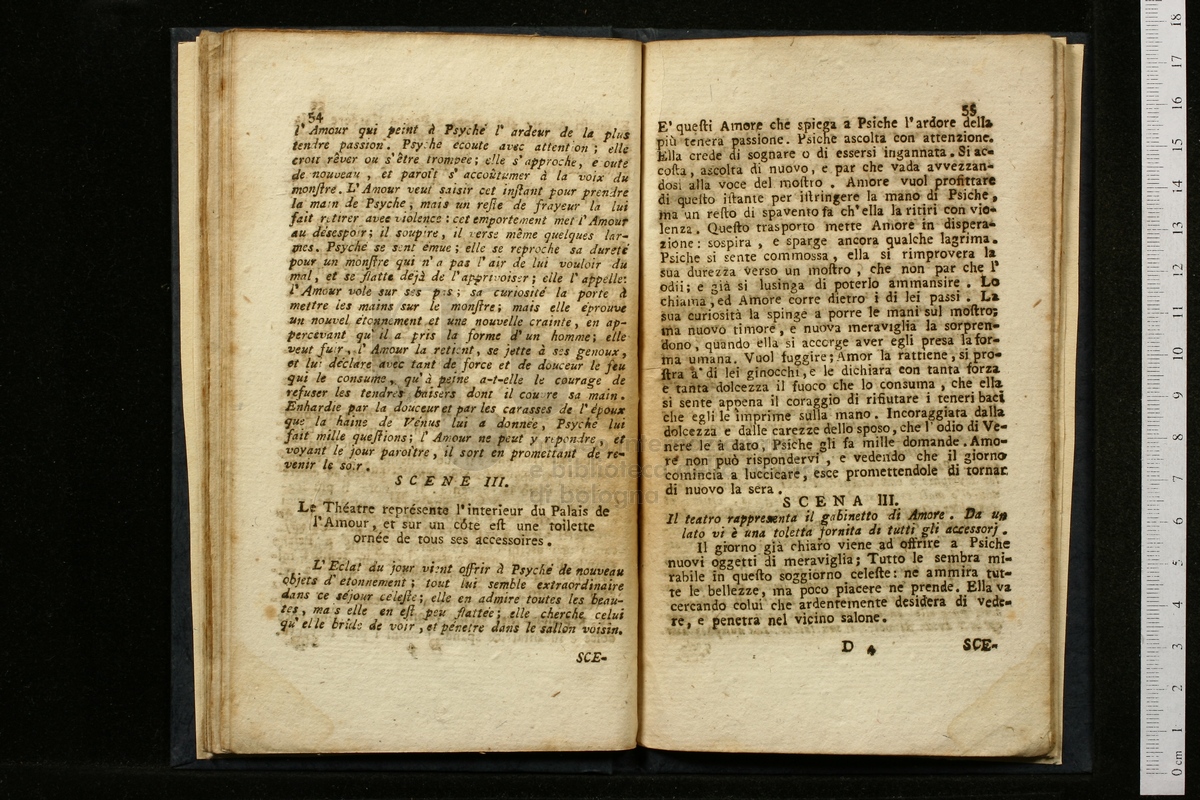 54
l'Amour qui peint à Psyché l'ardeur de la plus
tendre passion. Psyché écoute avec attention; elle
croit rêver ou s'être trompée; elle s'approche, écoute
de nouveau, et paroît s'accoûtumer à la voix du
monſtre. L'Amour veut saisir cet inſtant pour prendre
la main de Psyché, mais un reſte de frayeur la lui
fait retirer avec violence: cet emportement met l'Amour
au désespoir; il soupire, il verse même quelques lar-
mes. Psyché se sent émue; elle se reproche sa dureté
pour un monſtre qui n'a pas l'air de lui vouloir du
mal, et se flatte dejà de l'apprivoiser; elle l'appelle:
l'Amour vole sur ses pas; sa curiosité la porte à
mettre les mains sur le monſtre; mais elle éprouve
un nouvel étonnement et une nouvelle crainte, en ap-
percevant qu'il a pris la forme d'un homme; elle
veut fuir, l'Amour la retient, se jette à ses genoux,
et lui déclare avec tant de force et de douceur le feu
qui le consume, qu'à peine a-t-elle le courage de
refuser les tendres baisers dont il couvre sa main.
Enhardie par la douceur et par les carasses de l'époux
que la haine de Vénus lui a donnée, Psyché lui
fait mille queſtions; l'Amour ne peut y répondre, et
voyant le jour paroître, il sort en promettant de re-
venir le soir.
SCENE III.
Le Théatre représente l'interieur du Palais de
l'Amour, et sur un côte eſt une toilette
ornée de tous ses accessoires.
L'Eclat du jour vient offrir à Psyché de nouveau
objets d'etonnement; tout lui semble extraordinaire
dans ce séjour celeſte; elle en admire toutes les beau-
tes, mais elle en eſt peu flattée; elle cherche celui
qu'elle brûle de voir, et pénetre dans le sallon voisin.
SCE-
55
E' queſti Amore che spiega a Psiche l'ardore della
più tenera passione. Psiche ascolta con attenzione.
Ella crede di sognare o di essersi ingannata. Si ac-
coſta, ascolta di nuovo, e par che vada avvezzan-
dosi alla voce del moſtro. Amore vuol profittare
di queſto iſtante per iſtringere la mano di Psiche,
ma un reſto di spavento fa ch'ella la ritiri con vio-
lenza. Queſto trasporto mette Amore in dispera-
zione: sospira, e sparge ancora qualche lagrima.
Psiche si sente commossa, ella si rimprovera la
sua durezza verso un moſtro, che non par che l'
odii; e già si lusinga di poterlo ammansire. Lo
chiama, ed Amore corre dietro i di lei passi. La
sua curiosità la spinge a porre le mani sul moſtro;
ma nuovo timore, e nuova meraviglia la sorpren-
dono, quando ella si accorge aver egli presa la for-
ma umana. Vuol fuggire; Amor la rattiene, si pro-
ſtra a' di lei ginocchi, e le dichiara con tanta forza
e tanta dolcezza il fuoco che lo consuma, che ella
si sente appena il coraggio di rifiutare i teneri baci
che egli le imprime sulla mano. Incoraggiata dalla
dolcezza e dalle carezze dello sposo, che l'odio di Ve-
nere le à dato, Psiche gli fa mille domande. Amo-
re non può rispondervi, e vedendo che il giorno
comincia a luccicare, esce promettendole di tornar
di nuovo la sera.
SCENA III.
Il teatro rappresenta il gabinetto di Amore. Da un
lato vi è una toletta fornita di tutti gli accessorj.
Il giorno già chiaro viene ad offrire a Psiche
nuovi oggetti di meraviglia; Tutto le sembra mi-
rabile in queſto soggiorno celeſte: ne ammira tut-
te le bellezze, ma poco piacere ne prende. Ella va
cercando colui che ardentemente desidera di vede-
re, e penetra nel vicino salone.
D 4 SCE-
e biblioteca
di bologna
0 cm 1 2 3 4 5 6 7 8 9 10 11 12 13 14 15 16 17 18